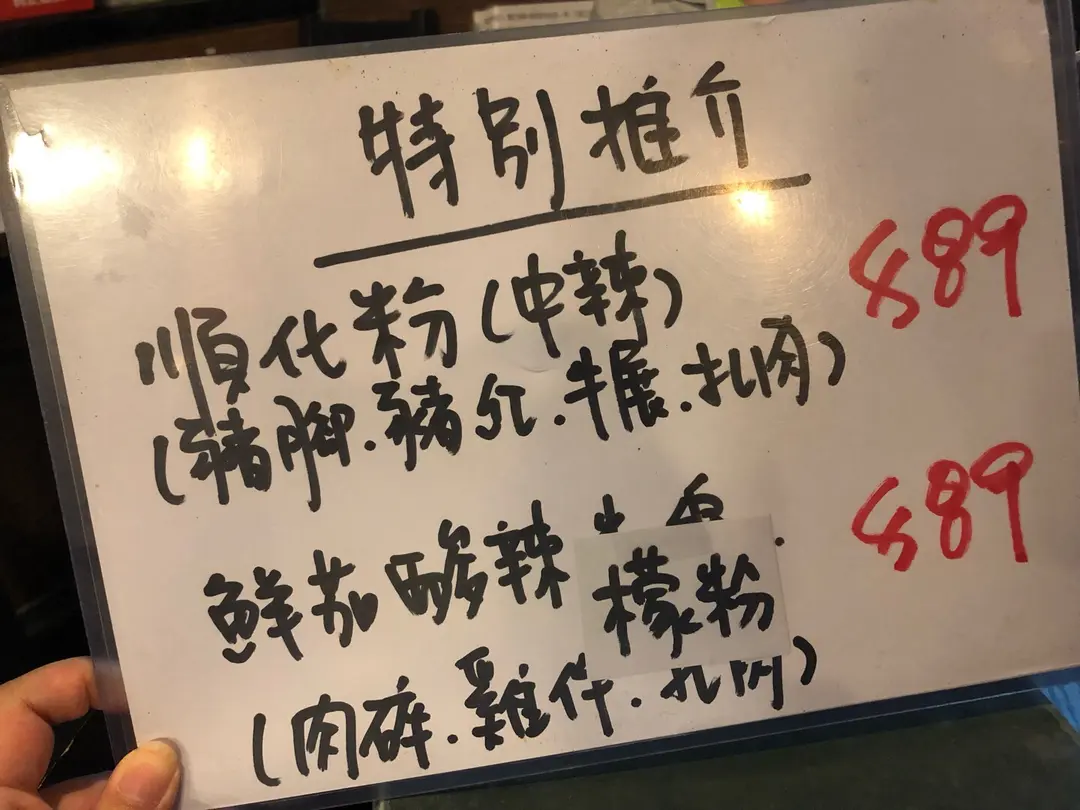 特別推介
順化粉(中辣) $89
(豬脚.豬红.牛展.扎肉)
鮮茄酸辣檬粉 $89
(肉碎.雞件.扎肉)